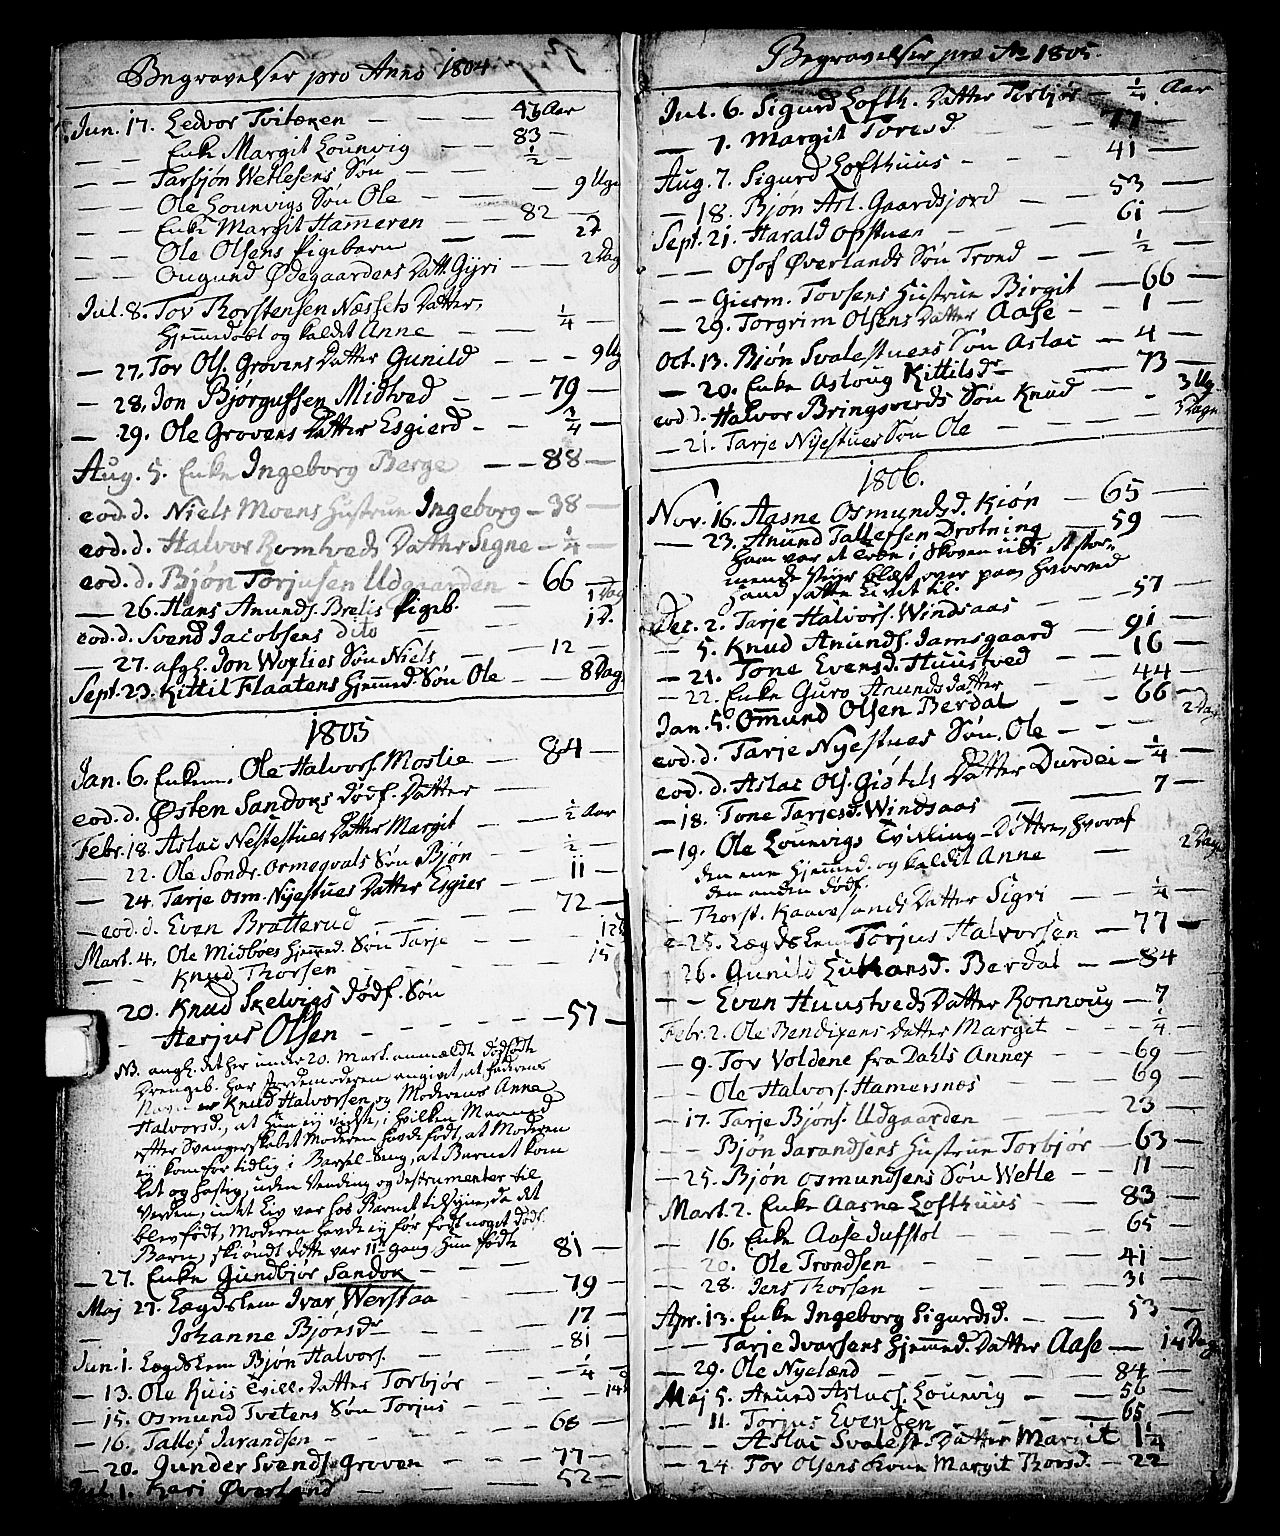 Begravelser pro Anno 1804
Jun. 17. Ledvor Tvitæken — — 47 Aar
— — Enke Margit Lounvig — — 83 —
— — Tarsjøn Wetlesens Søn — — ½ —
— — Ole Lounvigs Søn Ole — 9 Uge
— — Enke Margit Hameren — 82 —
— — Ole Olsens Pigebarn — —
— — Ougund Ødegaardens Datt. Gyri — — 2 Dag
Jul. 8. Tov Thorstensen Næssets Datter,
hjemmedøbt og kaldt Anne — — ¼ —
— 27. Tov Ols. Grovens Datter Gunild — — — 9 Ug
— 28. Jon Bjørgufsen Midtved — — 79 —
— 29. Ole Grovens Datter Esgierd — — ¾ —
Aug. 5. Enke Ingeborg Berge — — 88 —
eod. d. Niels Moens Hustrue Ingeborg — 38 —
eod. d. Halvor Romtveds Datter Signe — ¼ —
eod. d. Bjøn Torjusen Udgaarden — 66 —
— 26. Hans Anunds. Brelis Pigeb. — 1 Dag
eod. d. Svend Jacobsens dito — 1 D.
— 27. afg. Jon Woxlies Søn Niels — — 12 —
Sept. 23. Kittil Flaatens hjemmed. Søn Ole — — 8 Dag
1805
Jan. 6. Enkem. Ole Halvors. Moslie — 84 —
eod. d. Østen Sandoks dødf. Datter —
Febr. 18. Aslac Nestestues Datter Margit — ½ Aar
— 22. Ole Sondr. Ormegvals Søn Bjøn — ½ —
— 24. Tarje Osm. Nyestues Datter Esgier — 11 —
— eod. d. Even Bratterud — — 72 —
Mart. 4. Ole Midboes hjemmed. Søn Tarje —
— — Knud Thorsen — — — 15
20. Knud Skelvigs dødf. Søn
Herjus Olsen — — — — 57 —
NB. ang. det her under 20. Mart. anmældte dødfødte
Drengeb. har Jordemoderen angivet, at Faderens
Navn er Knud Halvorsen, og Moderens Anne
Halvorsd., at hun ej vidste, i hvilken Maaned
efter Svangerskabet Moderen havde født, at Moderen
ej kom for tidlig i Barsel-Seng, at Barnet kom
let og hastig, uden Vending og Instrumenter til
Verden, intet Liv var hos Barnet til Syne, da det
blev født, Moderen havde ej før født noget dødf.
Barn, skiøndt dette var 11te Gang, hun fødte
— 27. Enke Gundbjør Sandok — 81 —
Maj 27. Lægdslem Ivar Werstaa — 79 —
— Johanne Bjønsdr — — 17 —
Jun. 1. Lægdslem Bjøn Halvors. — — 81 —
— 13. Ole Ruis Tvill. Datter Torbjør — — ¼ —
— 15. Osmund Tvetens Søn Torjus — — 14 d
— 16. Talles Jarandsen — — — 68 —
— 20. Gunder Svends. Groven — — 77 —
Jul. 1. Kari Øverland — — — 52 —
Begravelser pro Ao 1805.
Jul. 6. Sigurd Lofth. Datter Torbjør — ¼ Aar
— 7. Margit Toresd. — — — 77 —
Aug. 7. Sigurd Lofthuus — — — 41 —
— 18. Bjøn Asl. Gaardsjord — — 53 —
Sept. 21. Harald Opstuen — — — 61 —
— — Olof Øverlands Søn Trond — — ½ —
— — Gierm. Tovsens Hustrue Birgit — 66 —
— 29. Torgrim Olsens Datter Aase — — 1 —
Oct. 13. Bjøn Svalestuens Søn Aslac — 4 —
— 20. Enke Asloug Kittilsdr — — 73 —
eod. d. Halvor Bringsverds Søn Knud — 3 Ug.
— 21. Tarje Nyestues Søn Ole — — — 5 Dage
1806.
Nov. 16. Aasne Osmundsd. Kiøn — 65 —
— 23. Anund Tallefsen Drotning — 59 —
Ham var et Træe i Skoven udi et stor=
mende Veir blæst over paa, hvorved
hand satte Livet til.
Dec. 2. Tarje Halvors. Windsaas — — 57 —
— 5. Knud Anunds. Jamsgaard — 91 —
— 21. Tone Evensd. Huustved — — 16 —
— 22. Enke Guro Anundsdatter — — 44 —
Jan. 5. Omund Olsen Berdal — — 66 —
eod. d. Tarje Nyestues Søn, Ole — — — 2 Dag.
eod. d. Aslac Ols. Giøtils Datter Durdei — ¼ —
— 18. Tone Tarjesd. Windsaas — — 7 —
— 19. Ole Lounvigs Tvilling-Døttre, hvoraf
den ene hjemmed. og kaldt Anne — 2 Dage
den anden dødf.
— Thorst. Kaavesands Datter Sigri — ¼ —
— 25. Lægdslem Torjus Halvorsen — 77 —
26. Gunild Huksansd. Berdal — 84
— — Even Huustveds Datter Ronnoug — 7
Febr. 2. Ole Bendixens Datter Margit — — ¼ —
— 9. Tov Voldene fra Dahls Annex — 69 —
— Ole Halvors. Hamersnos — — 69 —
— 17. Tarje Bjøns. Udgaarden — 23 —
— Bjøn Jarandsens Hustrue Torbjør — 63 —
— 25. Bjøn Osmundsens Søn Wetle — 11 —
Mart. 2. Enke Aasne Lofthuus — — 83 —
— 16. Enke Aase Jufstøl — — 65 —
— 20. Ole Trondsen — — — 41 —
— 28. Jens Thorsen — — — 31 —
Apr. 13. Enke Ingeborg Sigurdsd. — 53 —
— — Tarje Ivarsens hjemmed. Datter Aase — 14 Dage
— 29. Ole Nyelænd — — — 84 —
Maj 5. Anund Aslacs. Lounvig — — 56 —
— 11. Torjus Evensen — — 65 —
— — Aslac Svalest. Datter Margit 1¼
— 24. Tov Olsens Kvin Margit Thorsd. — 22 —